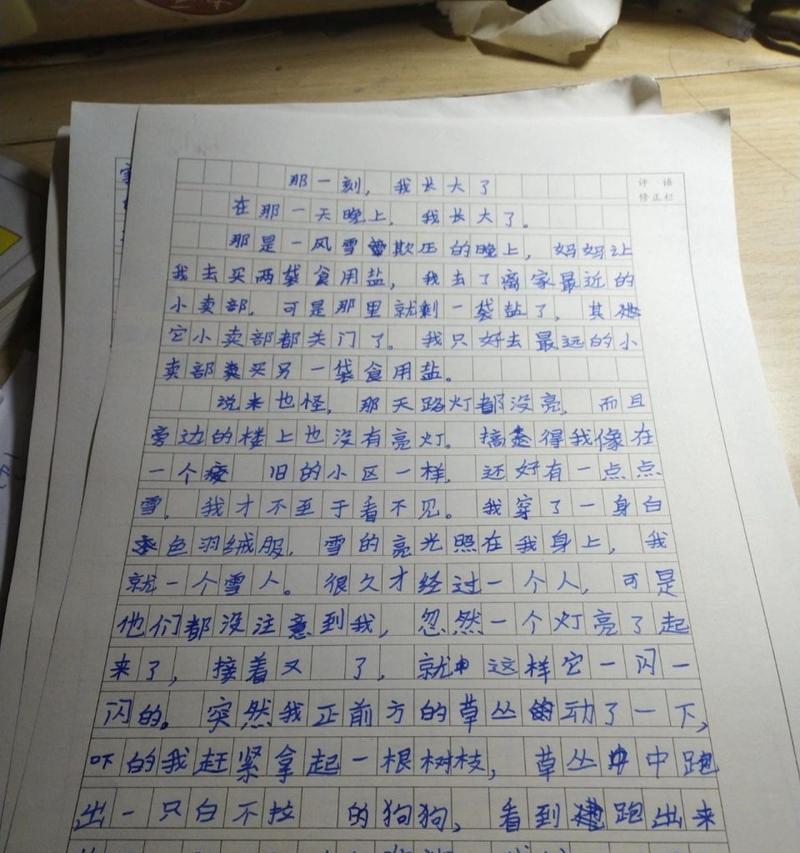 那一刻，我长大了
评语
修正栏
在那一天晚上，我长大了。
那是一风雪欺压的晚上，妈妈让
我去买两袋食用盐，我去了离家最近的
小卖部，可是那里就剩一袋盐了，其他
它小卖部都关门了。我只好去最远的小
卖部买另一袋食用盐。
说来也怪，那天路灯都没亮，而且
旁边的楼上也没有亮灯。搞得我像在
一个 旧的小区一样，还好有一点点
雪，我才不至于看不见。我穿了一身白
色羽绒服，雪的亮光照在我身上，我
就一个雪人。很久才经过一个人，可是
他们都没注意到我，忽然一个灯亮了起
来了，接着又 了，就这样它一闪一
闪的。突然我正前方的草丛动了一下，
吓的我赶紧拿起一根树枝，草丛中跑
出一只白不拉 的狗狗，看到跑出来